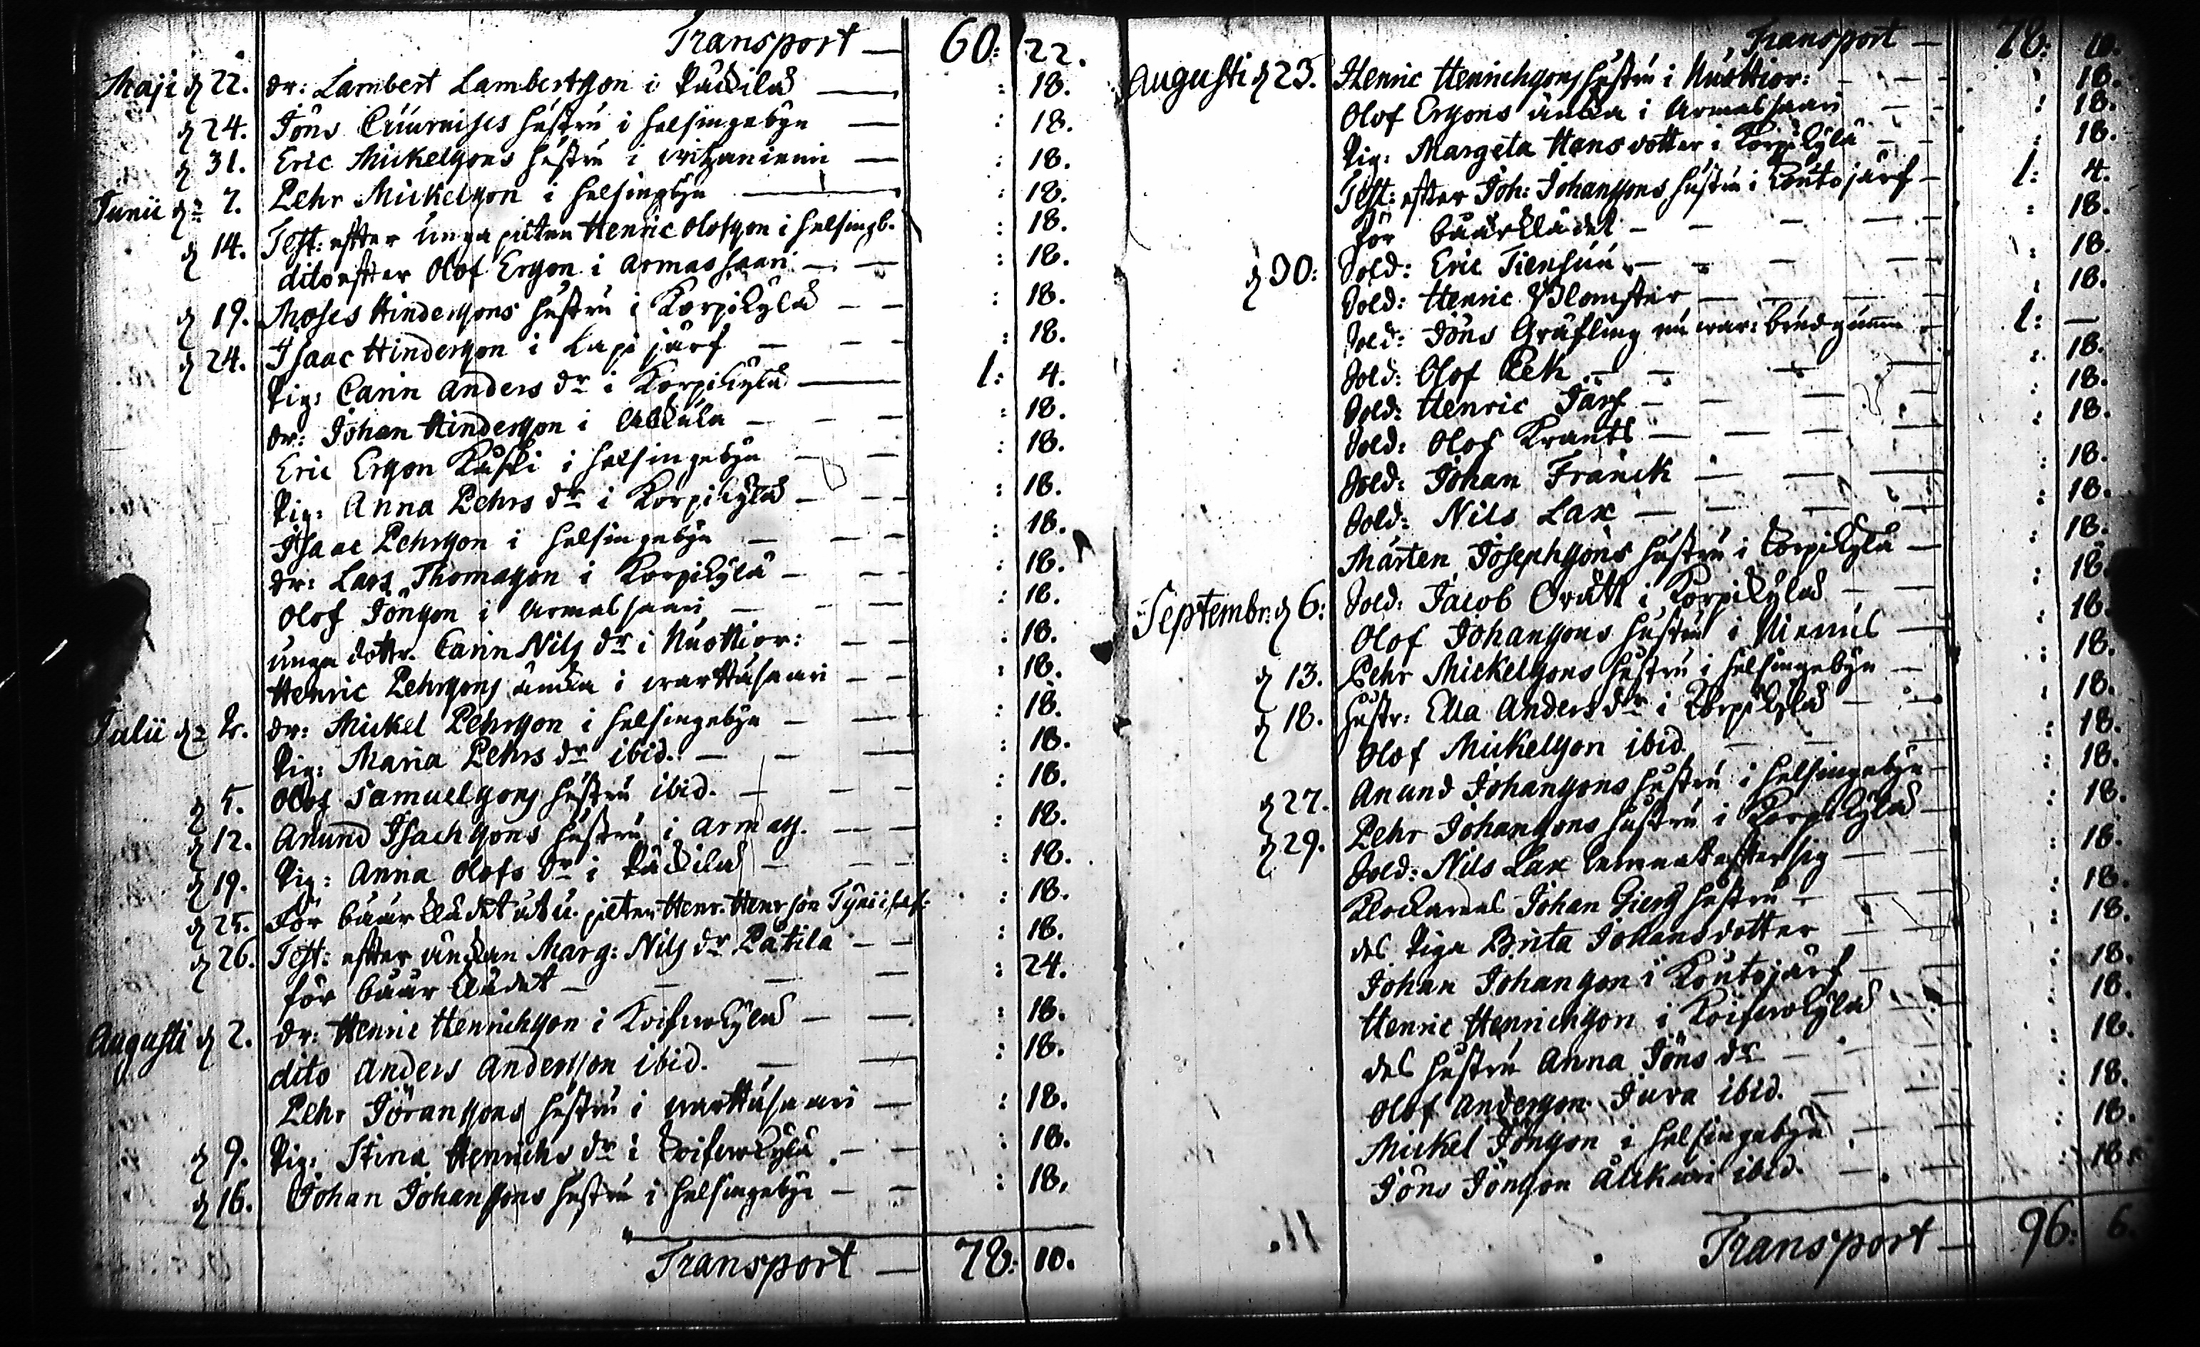 Transport — 60: 22.
Maji d 22. dr: Lambert Lambertsson i Päckilä — : 18.
d 24. Jöns Cuuraises hustru i helsingebyn — : 18.
d 31. Eric Mickelsons hustru i witzaniemi — : 18.
Junii d 7. Pehr Mickelson i helsingbyn — : 18.
d 14. Test: efter unga pilten Henric Olofson i helsingb. : 18.
dito efter Olof Erson i armassaari — : 18.
d 19. Moses Hindersons hustru i Korpikylä — : 18.
d 24. Isaac Hinderson i Lapojärf — : 18.
Pig: Carin Anders dr i Korpikylä — 1: 4.
dr: Johan Hinderson i Alkula — : 18.
Eric Erson Kuski i helsingebyn — : 18.
Pig: Anna Pehrs dr i Korpikylä — : 18.
Isaac Pehrson i helsingebyn — : 18.
dr: Lars Thomason i Korpikylä — : 18.
Olof Jönson i armassaari — : 18.
unga dottr. Carin Nils dr i Nuottior: — : 18.
Henric Pehrsons änka i marttusaari — : 18.
Julii d 2. dr: Mickel Pehrson i helsingebyn — : 18.
Pig: Maria Pehrs dr ibid. — : 18.
d 5. Olof Samuelsons hustru ibid. — : 18.
d 12. Anund Isachsons hustru i armas. — : 18.
d 19. Pig: Anna Olofs dr i Päckilä — : 18.
d 25. För båårklädet åt u. pilten Henr. Henrson : 18.
d 26. Test: efter änkan Marg: Nils dr Pätila — : 18.
för båårklädet — : 24.
Augusti d 2. dr: Henric Henrichson i Koifwukylä — : 18.
dito Anders Andersson ibid. — : 18.
Pehr Jöranssons hustru i marttusaari — : 18.
d 9. Pig: Stina Henrichs dr i Koifwukylä — : 18.
d 16. Johan Johanssons hustru i helsingebyn — : 18.
Transport — 78: 10.
Transport — 78: 10.
Augusti d 23. Henric Henrichsons hustru i Nuottior: — : 18.
Olof Ersons änka i Armassaari — : 18.
Pig: Margeta Hans dotter i Korpikylä — : 18.
Test: efter Joh: Johanssons hustru i Koutojärf — 1: 4.
för båårklädet — : 18.
d 30: Sold: Eric Tiensuu — : 18.
Sold: Henric Blomster — : 18.
Sold: Jöns Gräfling nu war: brudgumme — 1: —
Sold: Olof Rek — : 18.
Sold: Henric Järf — : 18.
Sold: Olof Krants — : 18.
Sold: Johan Franck — : 18.
Sold: Nils Lax — : 18.
Mårten Josephsons hustru i Korpikylä — : 18.
Septembr: d 6: Sold: Jacob Orätt i Korpikylä — : 18.
Olof Johansons hustru i Niemis — : 18.
d 13. Pehr Mickelsons hustru i helsingebyn — : 18.
d 18. hustr: Ella Anders dr i Korpikylä — : 18.
Olof Mickelson ibid. — : 18.
d 27. Anund Johansons hustru i helsingebyn — : 18.
d 29. Pehr Johansons hustru i Korpikylä — : 18.
Sold: Nils Lax lemnat efter sig — : 18.
Klockarens Johan Giers hustru — : 18.
des Piga Brita Johansdotter — : 18.
Johan Johanson i Koutojärf — : 18.
Henric Henrichson i Koifwukylä — : 18.
des hustru Anna Jöns dr — : 18.
Olof Anderson Jura ibid. — : 18.
Mickel Jönson i helsingebyn — : 18.
Jöns Jönson Alikuri ibid. — : 18.
Transport — 96: 6.